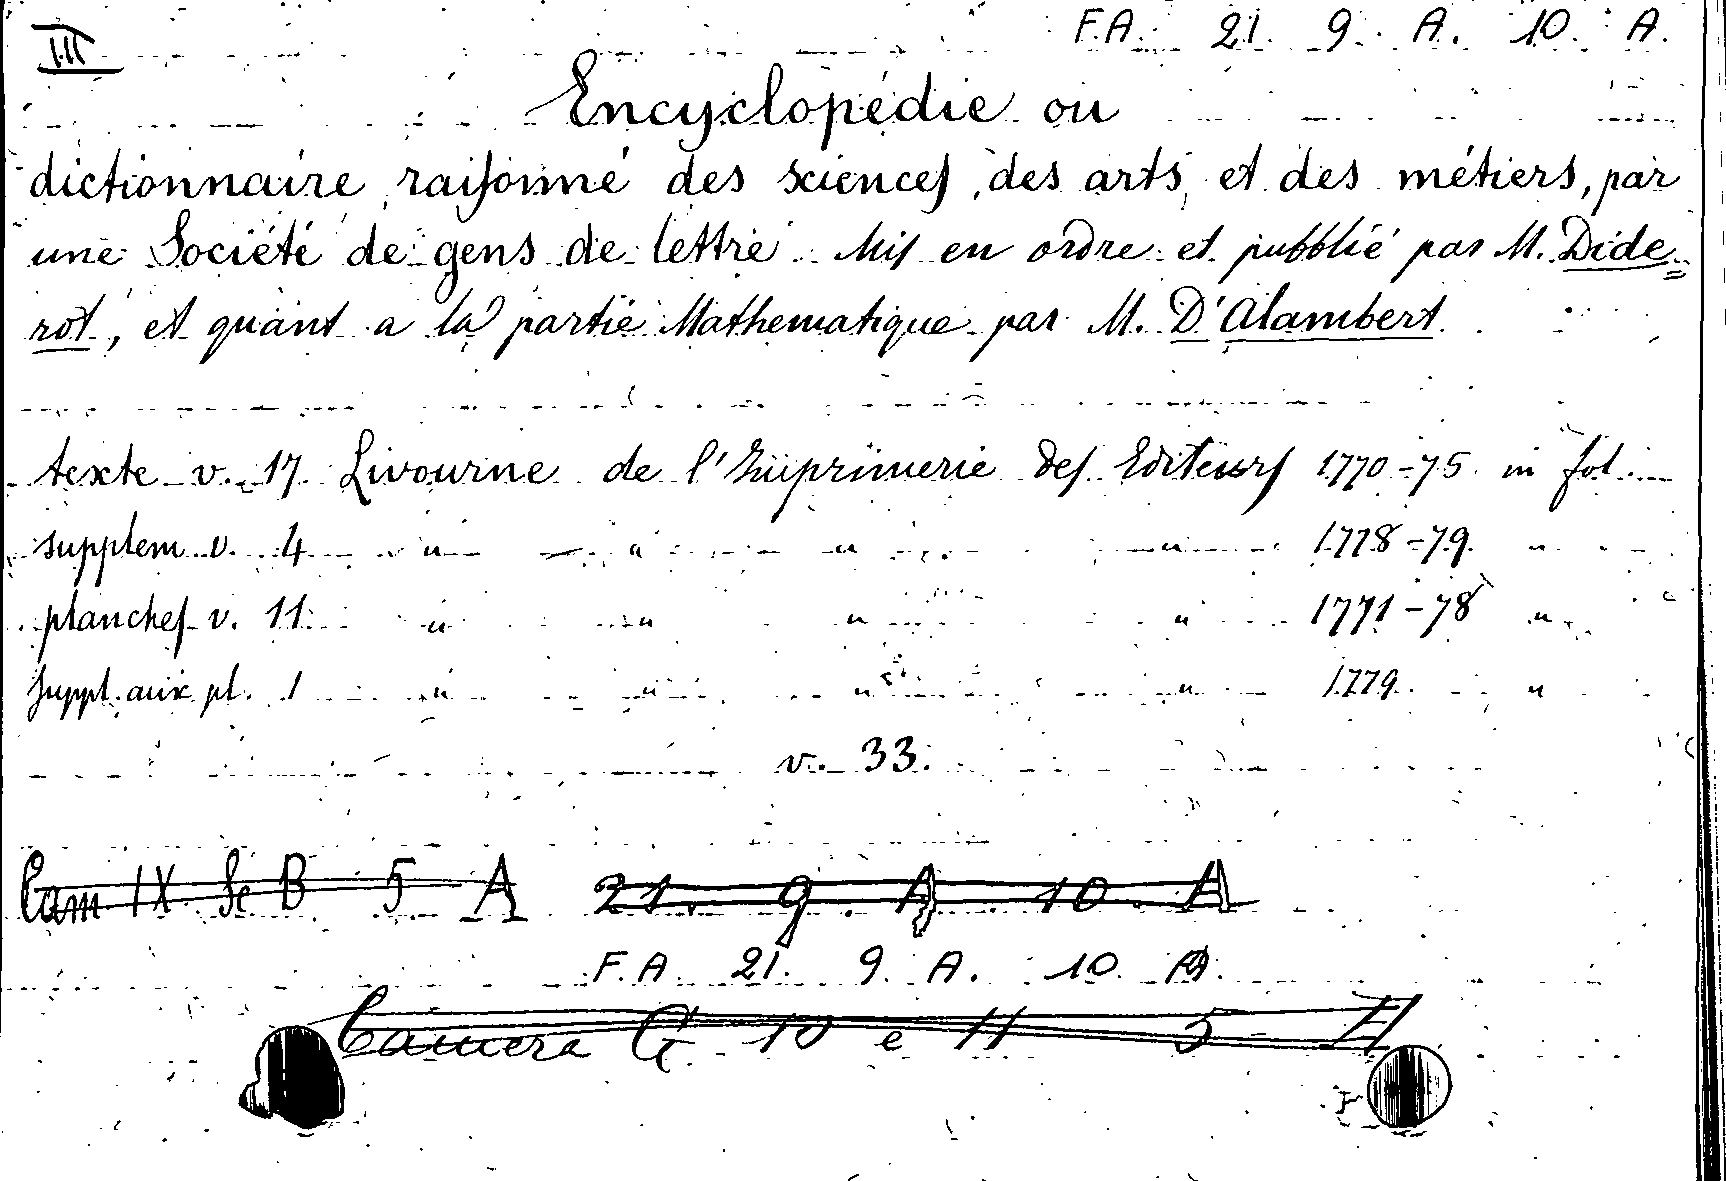 III
F.A. 21. 9. A. 10. A.
Encyclopédie ou
dictionnaire raisonné des sciences, des arts, et des métiers, par
une Société de gens de lettre Mis en ordre et pubblié par M. Dide=
rot, et quant a la partie Mathematique par M. D'Alambert
texte v. 17 Livourne de l'Imprimerie des Editeurs 1770-75 in fol.
supplem v. 4 " " " " 1778-79. "
planches v. 11 " " " " 1771-78 "
suppl. aux pl. 1 " " " " 1779. "
v. 33.
Cam IX. Sc B 5 A 21. 9. A 10. A
F.A 21. 9. A. 10. A.
Camera G 10 e 11 5 A